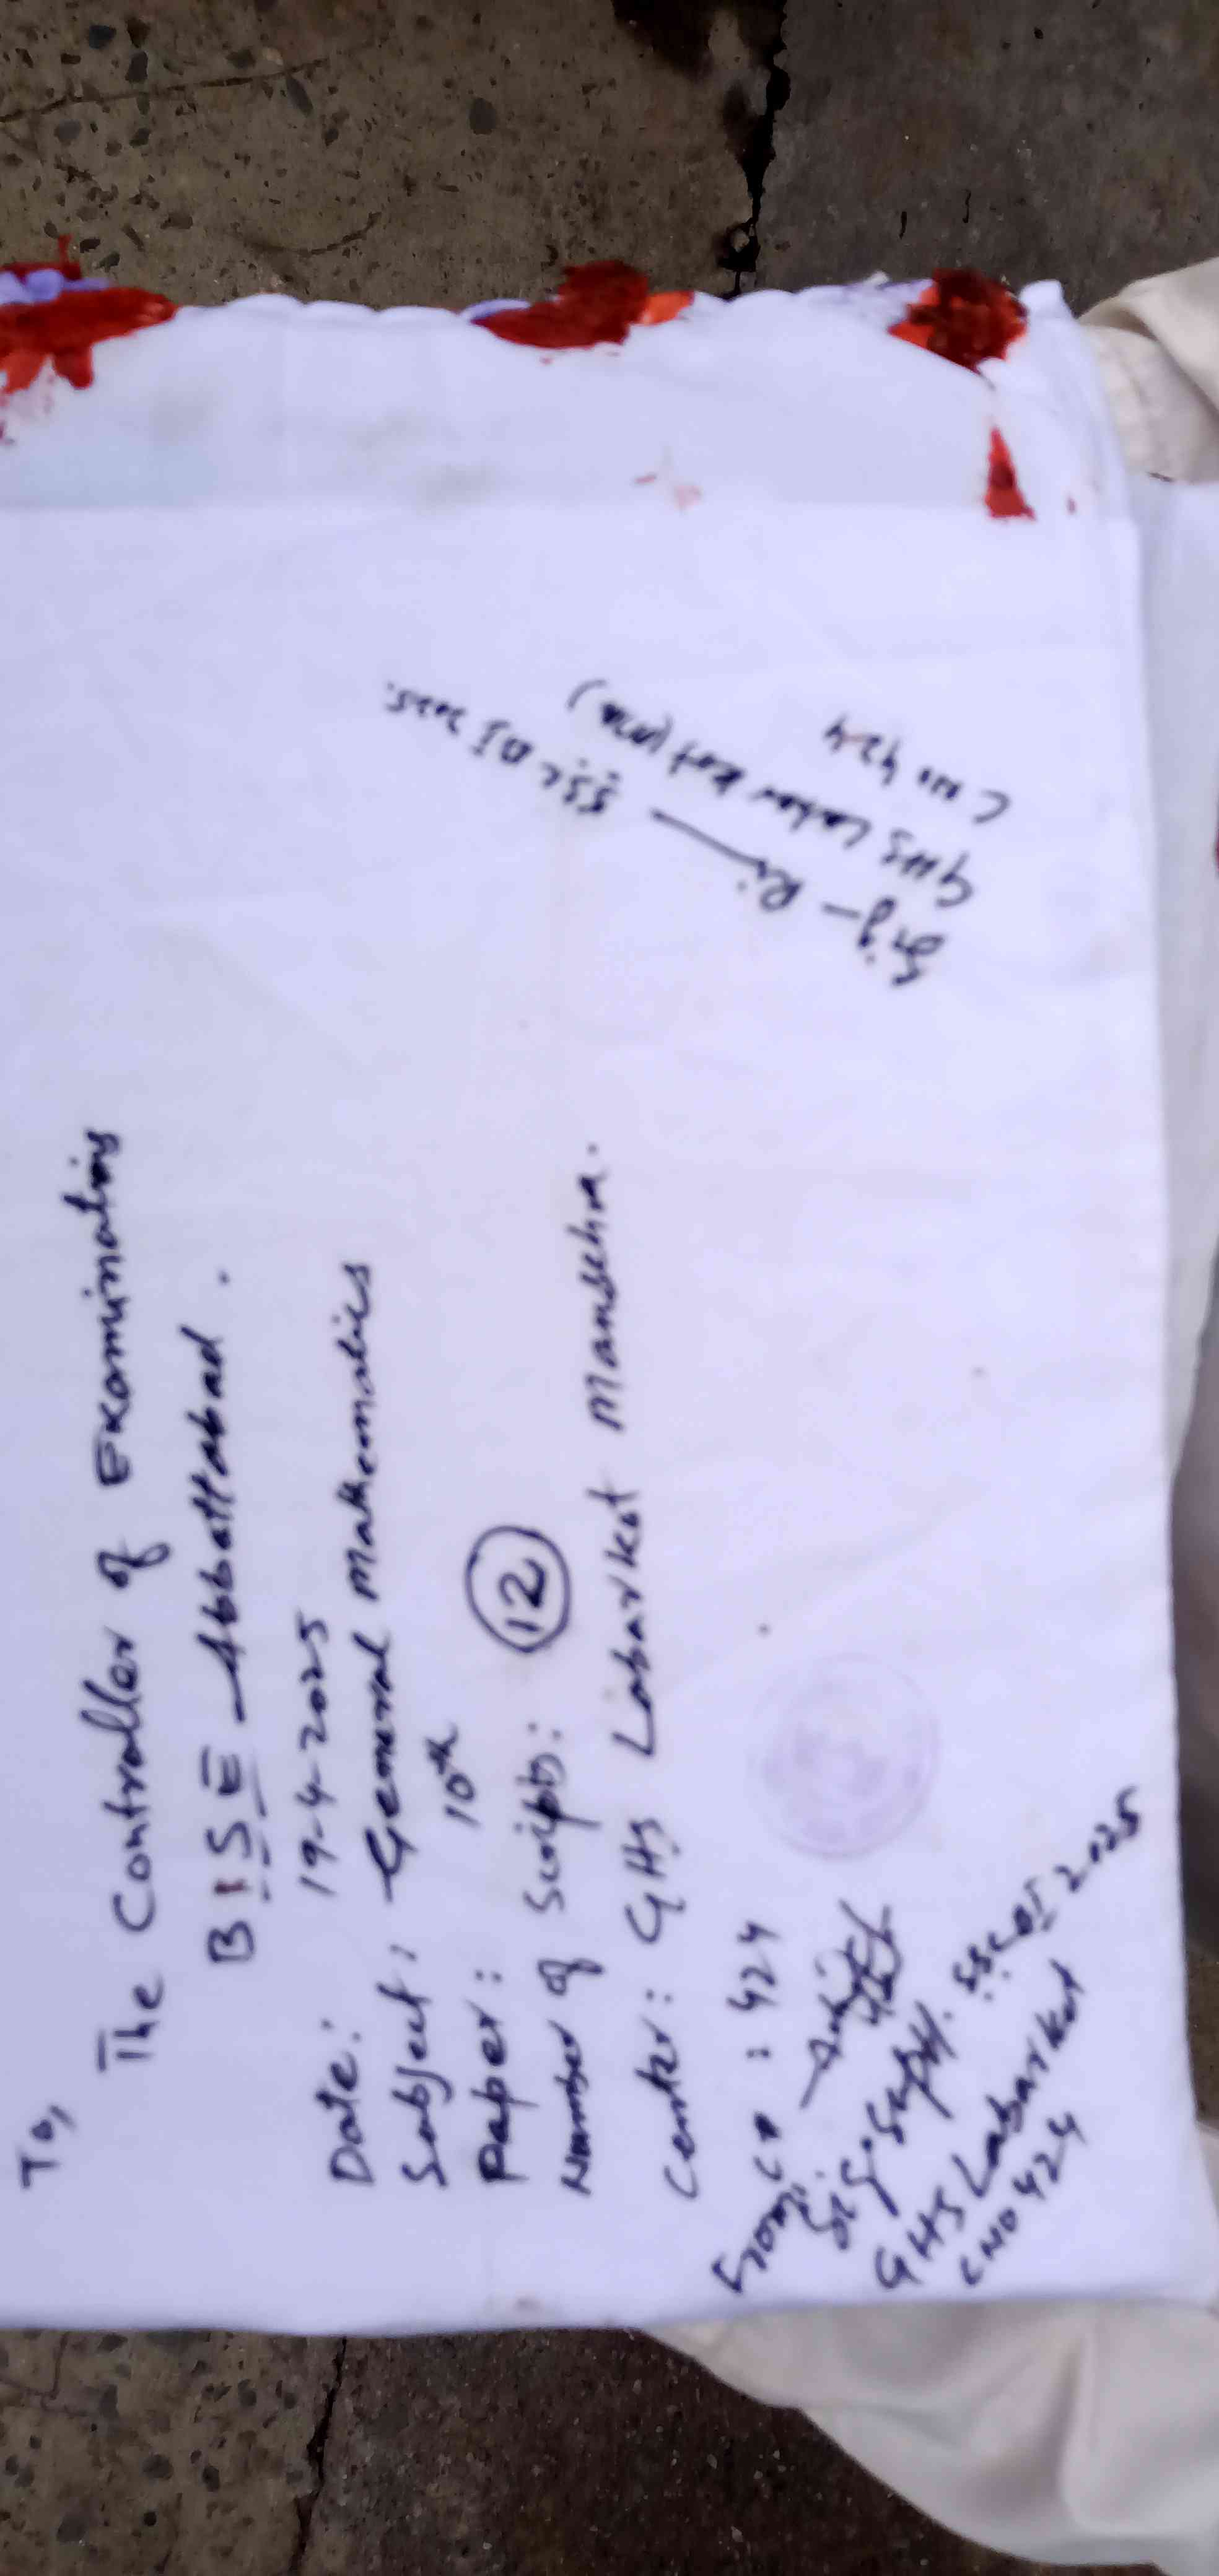 To,
The Controller of Examinations
B I S E Abbottabad.
Date: 19-4-2025
Subject: General Mathematics
Paper: 10th
Number of Scripts: 12
Center: GHS Labarkot Mansehra.
C# : 424
From;
Sig. Supdt. SSC AI 2025
GHS Labarkot
C NO 424
Sig - Ri SSC AI 2025.
GHS Labar Kot (MA)
C NO 424